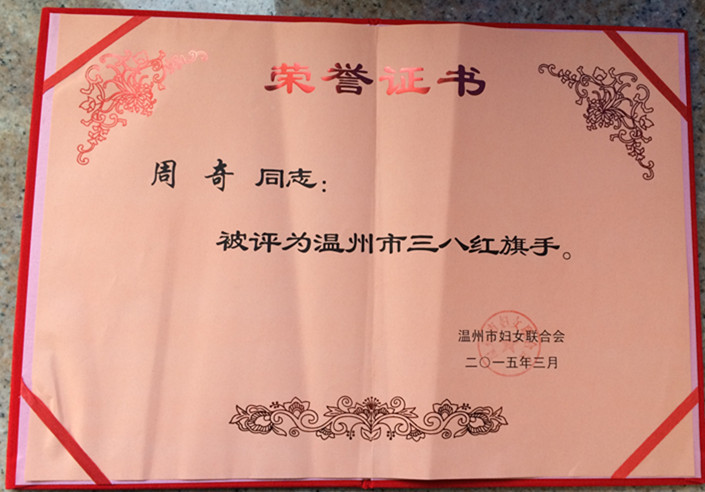 荣誉证书
周奇同志：
被评为温州市三八红旗手。
温州市妇女联合会
二〇一五年三月